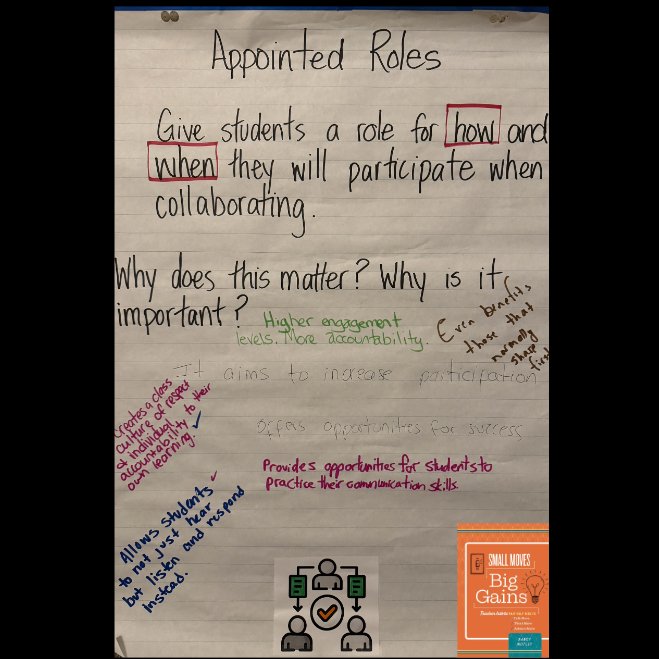 Appointed Roles
Give students a role for how and
when they will participate when
collaborating.
Why does this matter? Why is it
important?
Higher engagement
levels. More accountability.
Even benefits
those that
normally
share
first
It aims to increase participation
Creates a class
culture of respect
of individual
accountability to their
own learning.
offers opportunities for success
Provides opportunities for students to
practice their communication skills.
Allows students
to not just hear
but listen and respond
instead.
SMALL MOVES
Big
Gains